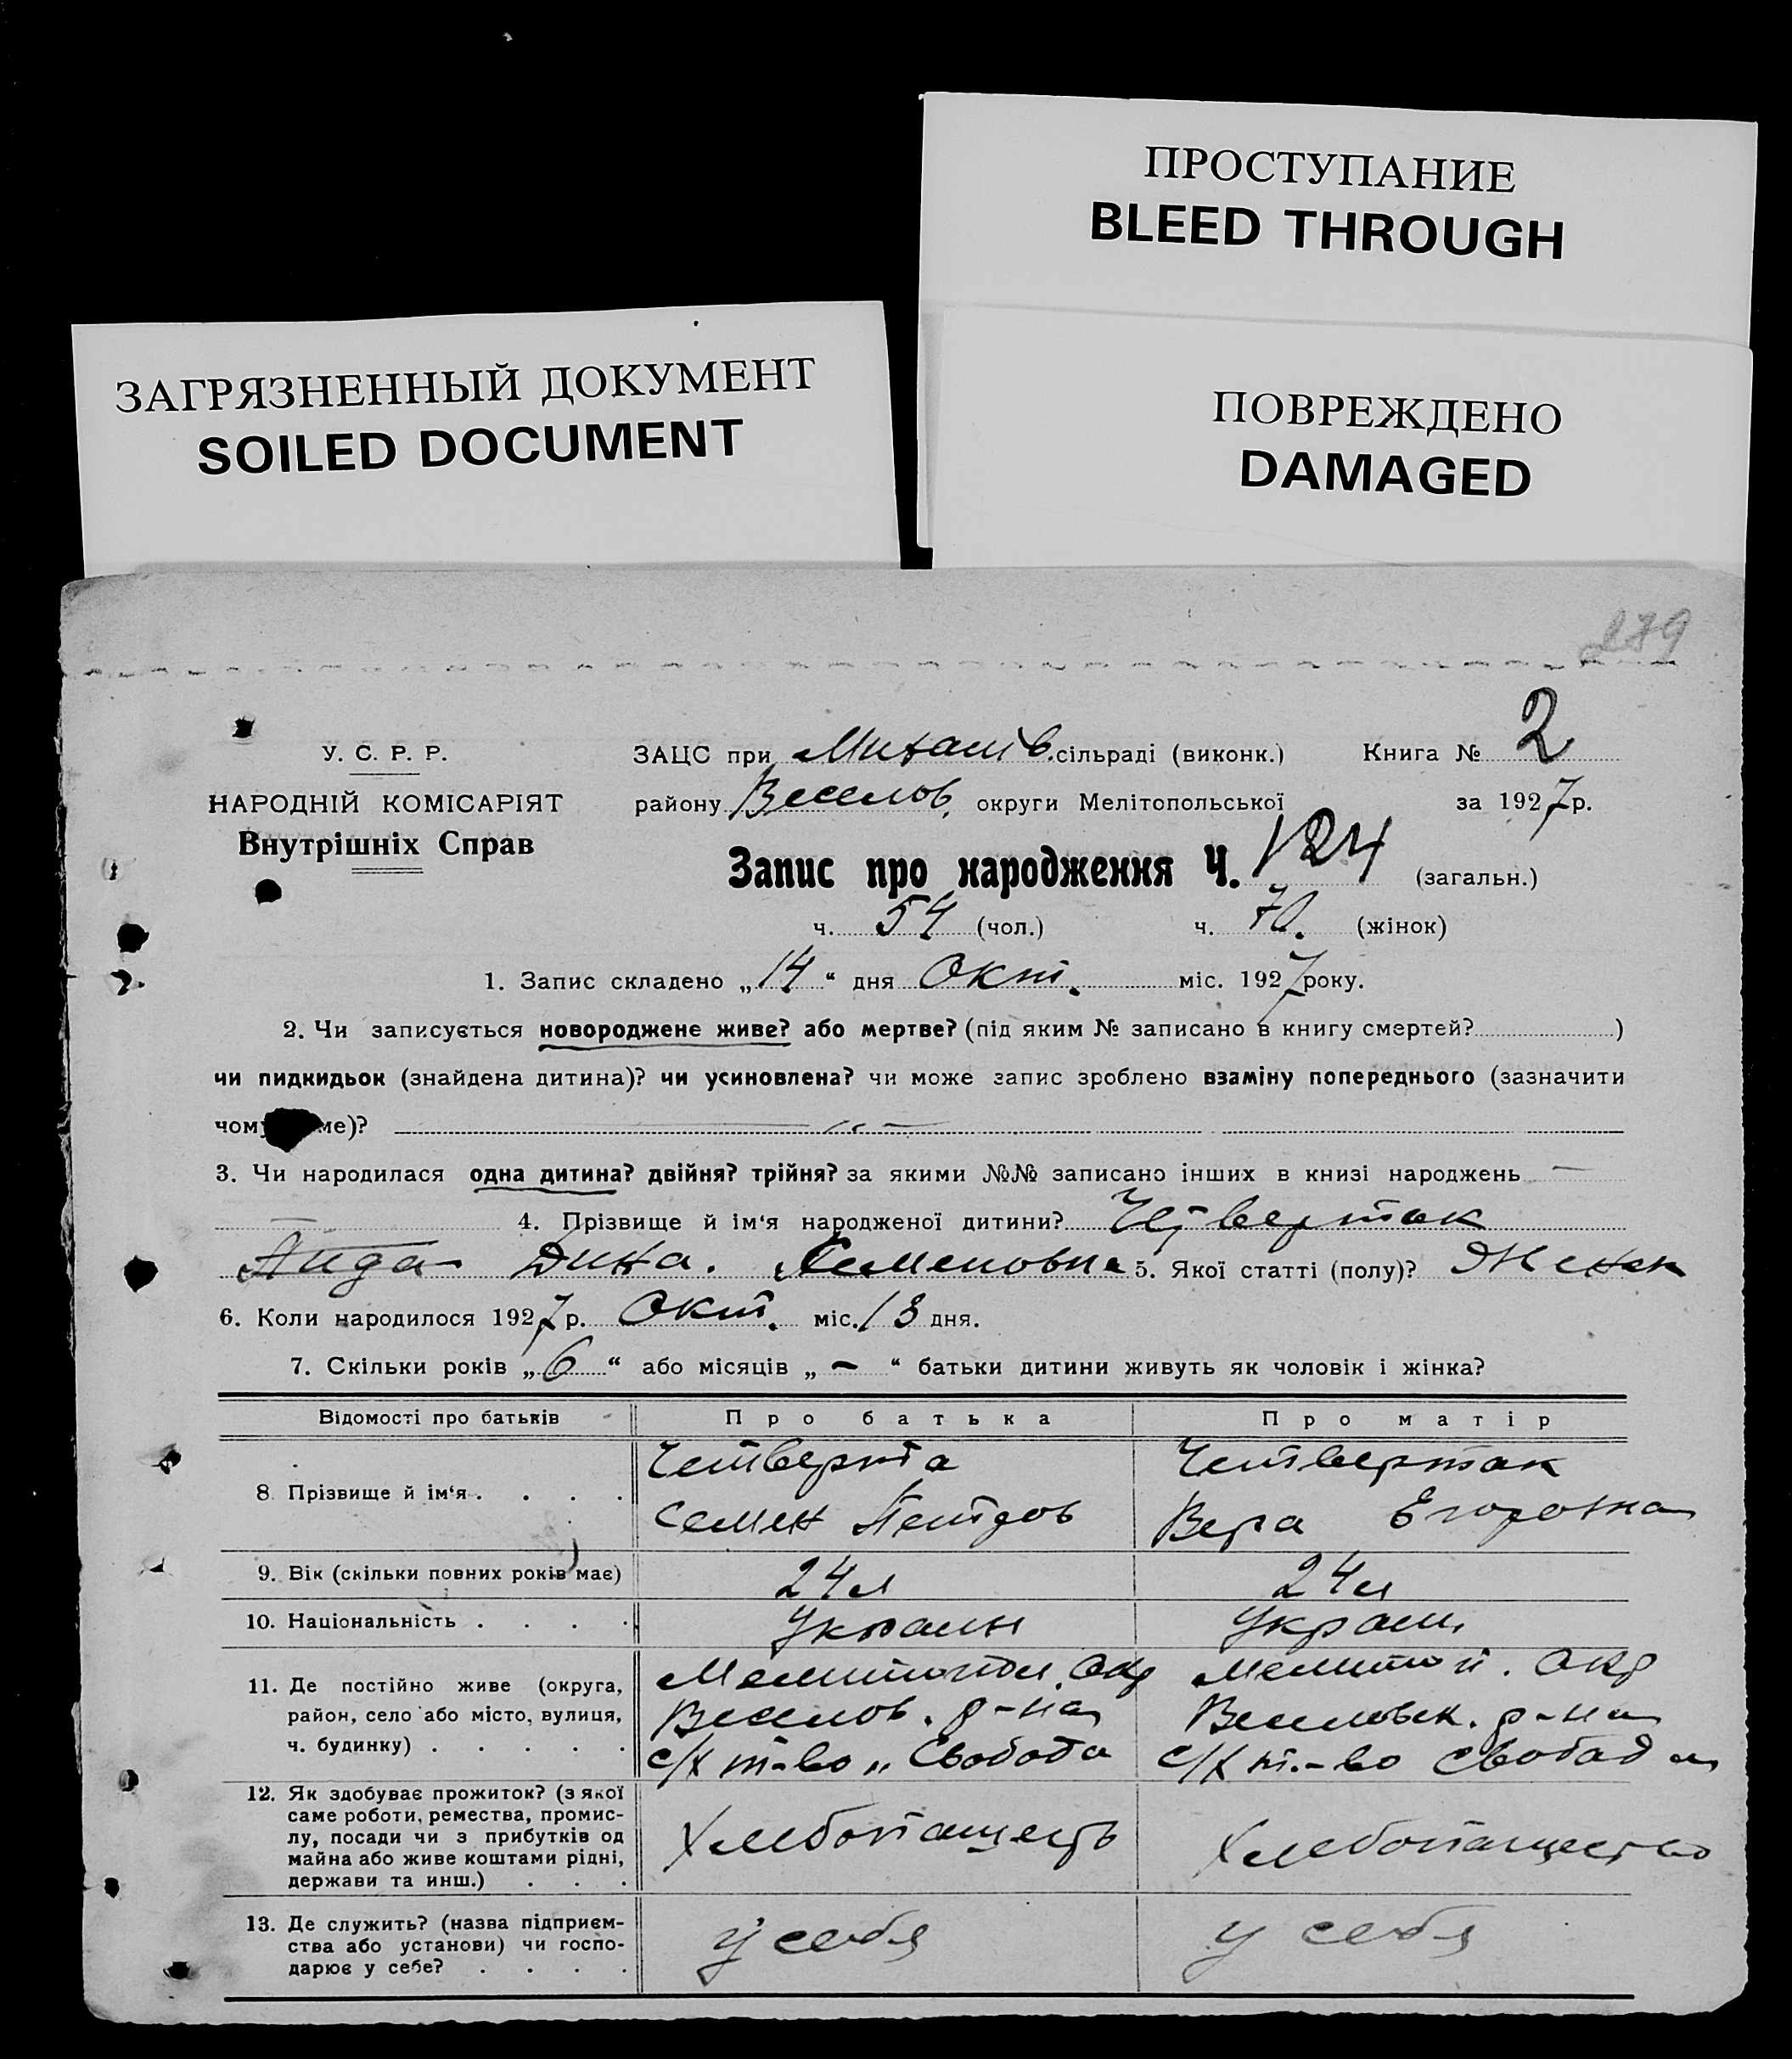 ПРОСТУПАНИЕ
BLEED THROUGH
ЗАГРЯЗНЕННЫЙ ДОКУМЕНТ
SOILED DOCUMENT
ПОВРЕЖДЕНО
DAMAGED
279
У. С. Р. Р.
НАРОДНІЙ КОМІСАРІЯТ
Внутрішніх Справ
ЗАЦС при Михайлів. сільраді (виконк.) Книга № 2
району Веселов. округи Мелітопольської за 1927 р.
Запис про народження Ч. 124 (загальн.)
ч. 54 (чол.) ч. 70. (жінок)
1. Запис складено „14“ дня Окт. міс. 1927 року.
2. Чи записується новороджене живе? або мертве? (під яким № записано в книгу смертей? )
чи пидкидьок (знайдена дитина)? чи усиновлена? чи може запис зроблено взаміну попереднього (зазначити
чому ме)?
3. Чи народилася одна дитина? двійня? трійня? за якими №№ записано інших в книзі народжень —
4. Прізвище й ім‘я народженої дитини? Четвертак
Лида Дина. Семеновна 5. Якої статті (полу)? Женск
6. Коли народилося 1927 р. Окт. міс. 13 дня.
7. Скільки років „6“ або місяців „—“ батьки дитини живуть як чоловік і жінка?
Відомості про батьків Про батька Про матір
8. Прізвище й ім‘я . . . .
Четверта
Семен Петров
Четвертак
Вера Егоровна
9. Вік (скільки повних років має) 24 л 24 л
10. Національність . . . . Украин Украин.
11. Де постійно живе (округа,
район, село або місто, вулиця,
ч. будинку) . . . . .
Мелитопол. Окр
Веселов. р-на
с/х т-во „Свобода
Мелитоп. Окр
Веселовск. р-на
с/х т.-во Свобода
12. Як здобуває прожиток? (з якої
саме роботи, ремества, промис-
лу, посади чи з прибутків од
майна або живе коштами рідні,
держави та инш.) . . .
Хлебопашеств
Хлебопашество
13. Де служить? (назва підприєм-
ства або установи) чи госпо-
дарює у себе? . . . .
у себя
у себя